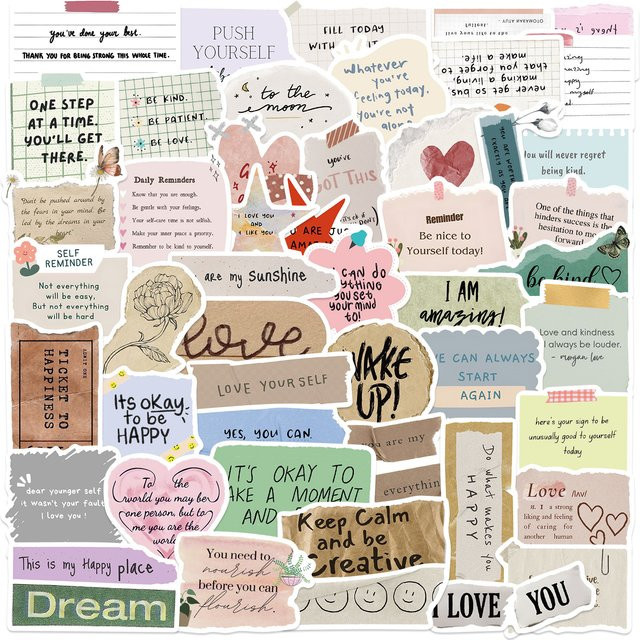 you've done your best.
THANK YOU FOR BEING STRONG THIS WHOLE TIME.
PUSH
YOURSELF
FILL TODAY
WITH
Whatever
you're
feeling today,
you're not
alone
never get so busy
making a living,
that you forget to
make a life.
ONE STEP
AT A TIME.
YOU'LL GET
THERE.
BE KIND.
BE PATIENT.
BE LOVE.
to the
moon
you've
GOT THIS
you will never regret
being kind.
Don't be pushed around by
the fears in your mind. Be
led by the dreams in your
heart.
Daily Reminders
Know that you are enough.
Be gentle with your feelings.
Your self-care time is not selfish.
Make your inner peace a priority.
Remember to be kind to yourself.
I LOVE YOU
AND
I LIKE YOU
Reminder
Be nice to
Yourself today!
One of the things that
hinders success is the
hesitation to move
forward.
SELF
REMINDER
Not everything
will be easy,
But not everything
will be hard
are my sunshine
I CAN DO
ANYTHING
YOU SET
YOUR MIND
TO!
I AM
amazing!
be kind
love
Love and kindness
always be louder.
- morgan love
TICKET TO
HAPPINESS
ADMIT ONE
LOVE YOURSELF
WAKE
UP!
WE CAN ALWAYS
START
AGAIN
Its okay
to be
HAPPY
YES, YOU CAN.
you are my
everything
here's your sign to be
unusually good to yourself
today
dear younger self
it wasn't your fault
I love you!
To the
world you may be
one person, but to
me you are the
world
IT'S OKAY TO
TAKE A MOMENT
AND
Do what makes you
HAPPY
Love /lʌv/
n. 1 a strong
liking and feeling
of caring for
another human
Keep Calm
and be
Creative
This is my Happy place
You need to
nourish
before you can
flourish.
Dream
I LOVE
YOU